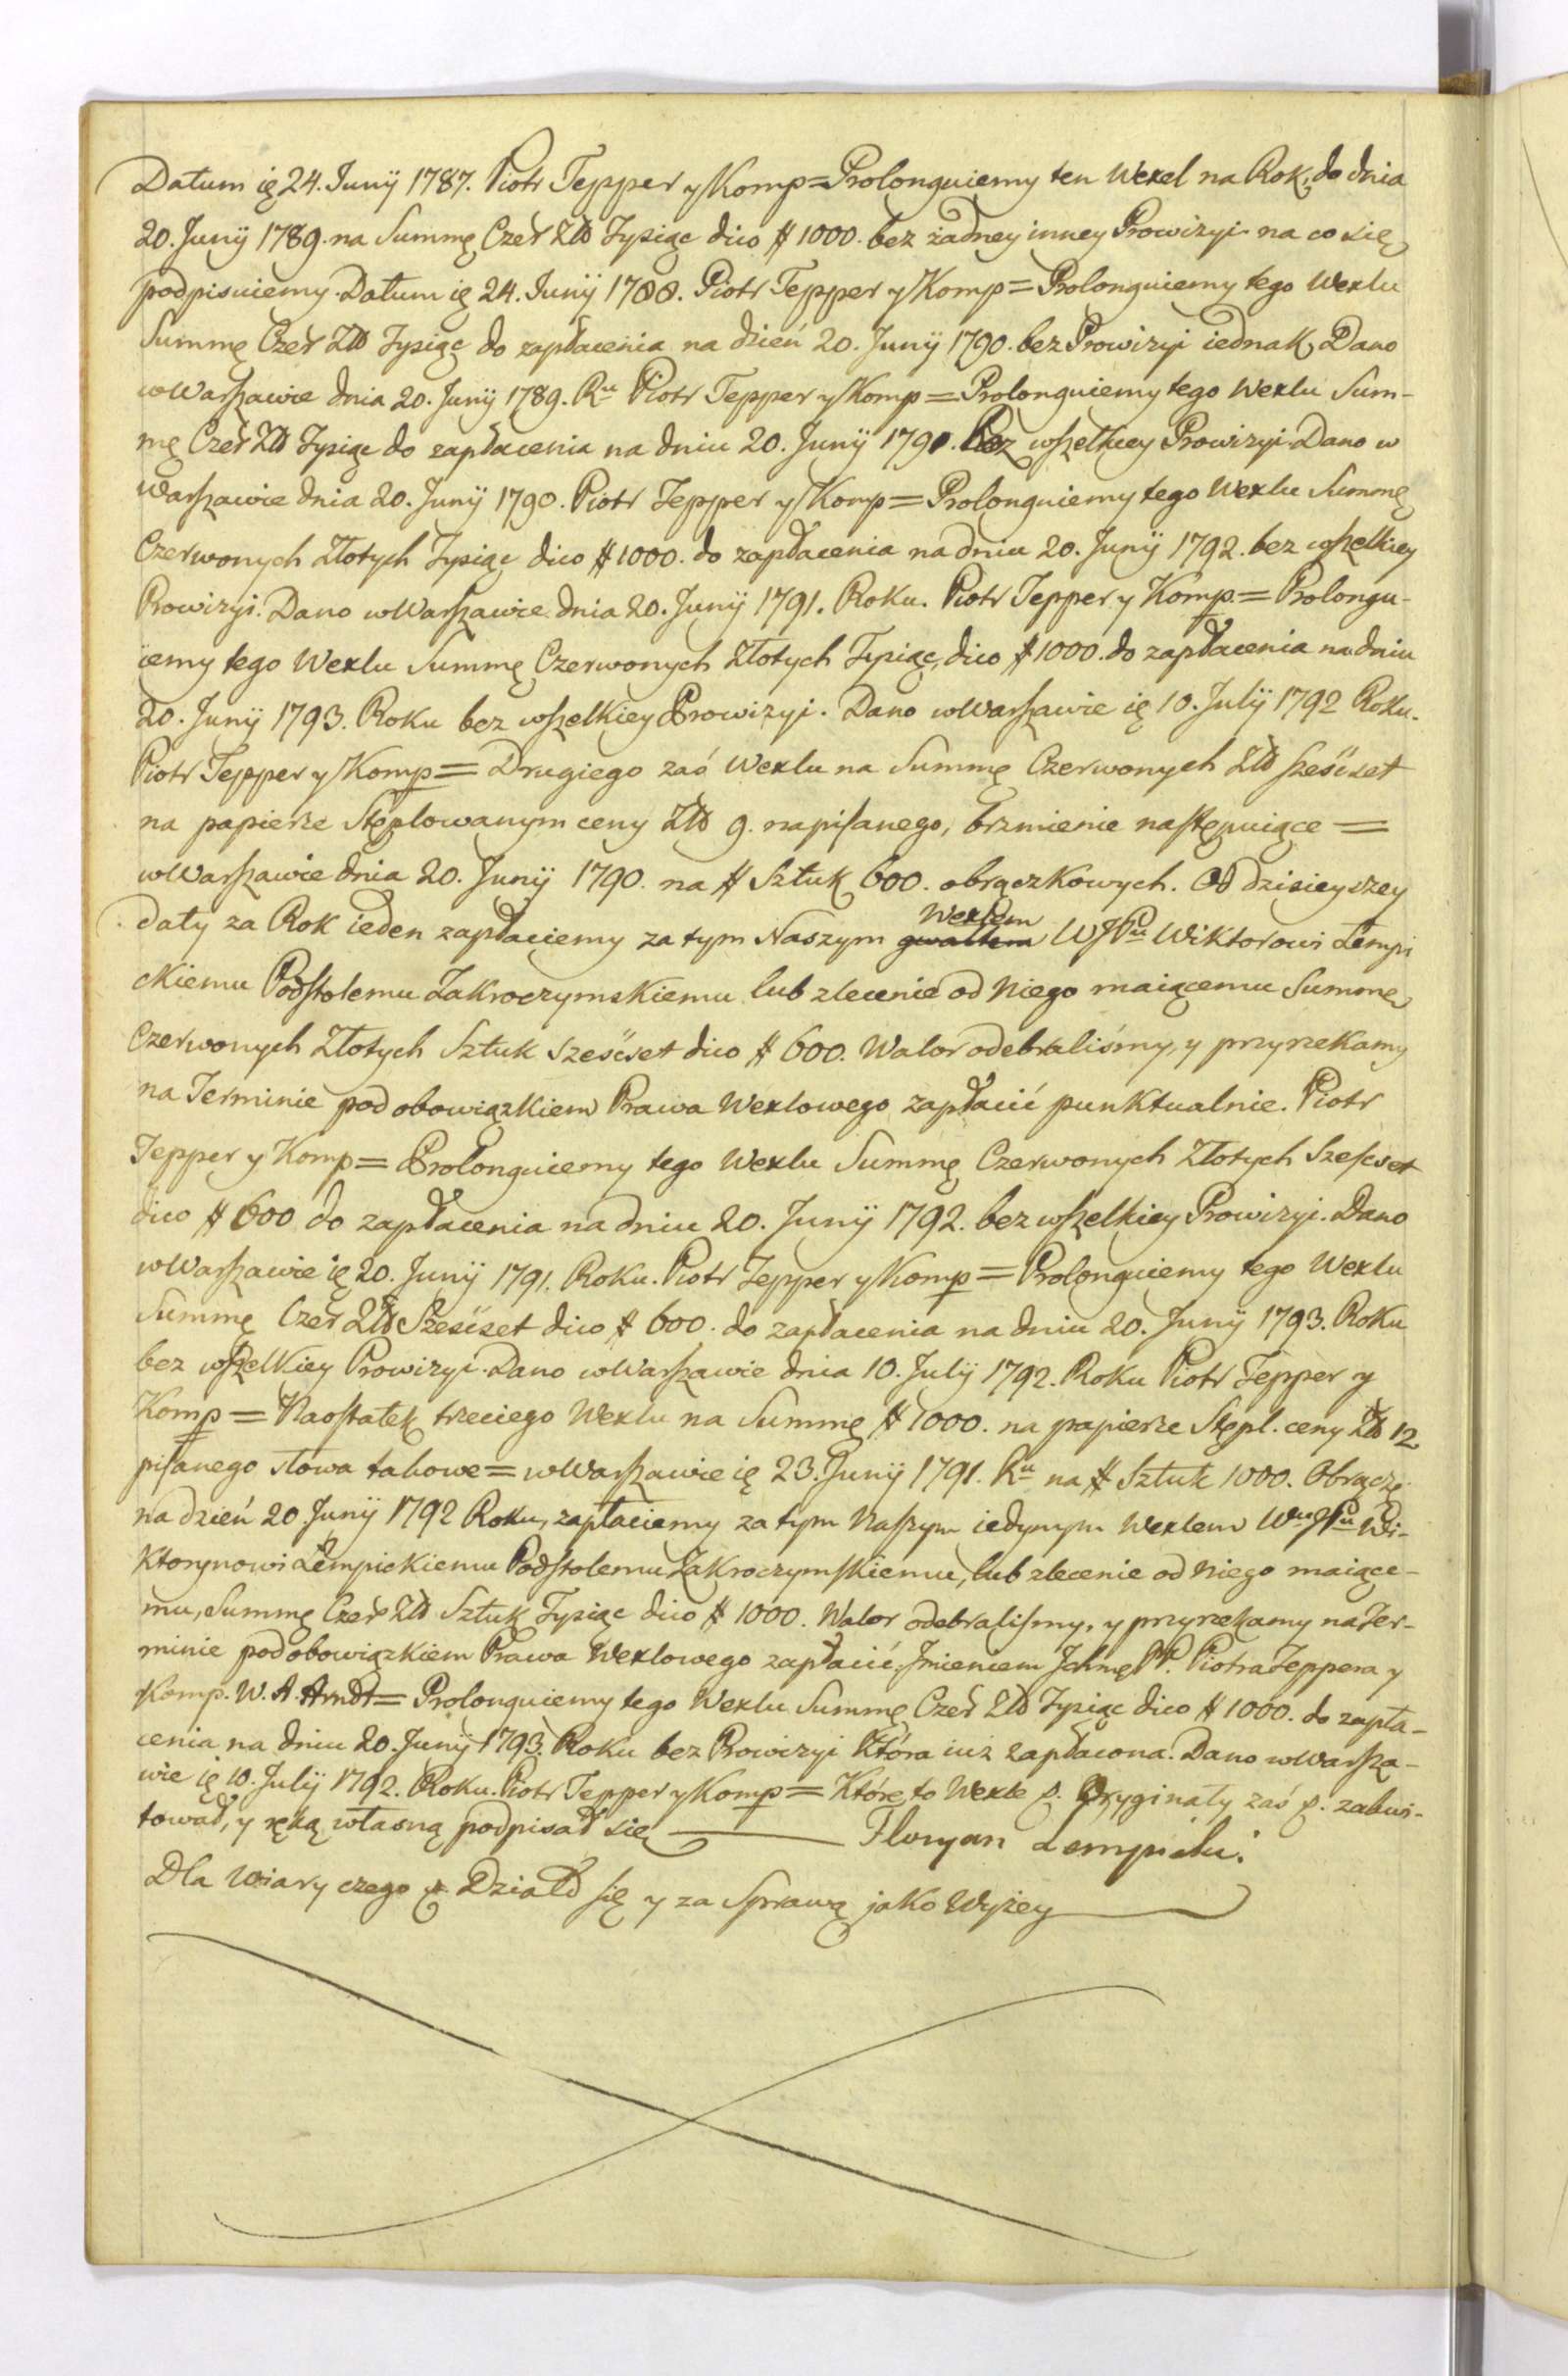 Datum ię 24. Junÿ 1787. Piotr Tepper y Komp = Prolonguiemy ten Wexel na Rok, do dnia
20. Junÿ 1789. na Summę Czer Złł Tysiąc dico # 1000. bez żadney inney Prowizyi na co się
podpisuiemy. Datum ię 24. Junÿ 1788. Piotr Tepper y Komp = Prolonguiemy tego Wexlu
Summę Czer Złł Tysiąc do zapłacenia na dzień 20. Junÿ 1790. bez Prowizyi iednak, Dano
w Warszawie dnia 20. Junÿ 1789. Ru Piotr Tepper y Komp = Prolonguiemy tego Wexlu Sum-
mę Czer Złł Tysiąc do zapłacenia na dniu 20. Junÿ 1791. bez wszelkiey Prowizyi. Dano w
Warszawie dnia 20. Junÿ 1790. Piotr Tepper y Komp = Prolonguiemy tego Wexlu Summę
Czerwonych Złotych Tysiąc dico # 1000. do zapłacenia na dniu 20. Junÿ 1792. bez wszelkiey
Prowizyi. Dano w Warszawie dnia 20. Junÿ 1791. Roku. Piotr Tepper y Komp = Prolongu-
iemy tego Wexlu Summę Czerwonych Złotych Tysiąc, dico # 1000. do zapłacenia na dniu
20. Junÿ 1793. Roku bez wszelkiey Prowizyi. Dano w Warszawie ię 10. Julÿ 1792 Roku.
Piotr Tepper y Komp = Drugiego zaś Wexlu na Summę Czerwonych Złł sześćset
na papierze Stęplowanym ceny Złł 9. napisanego, brzmienie następuiące =
w Warszawie dnia 20. Junÿ 1790. na # Sztuk 600. obrączkowych. Od dzisieyszey
daty za Rok ieden zapłaciemy za tym Naszym gwałtem Wexlem WJPu Wiktorowi Łempi
ckiemu Podstolemu Zakroczymskiemu lub zlecenie od Niego maiącemu Summę
Czerwonych Złotych Sztuk sześćset dico # 600. Walor odebraliśmy, y przyrzekamy
na Terminie pod obowiązkiem Prawa Wexlowego zapłacić punktualnie. Piotr
Tepper y Komp = Prolonguiemy tego Wexlu Summę Czerwonych Złotych Szescset
dico # 600 do zapłacenia na dniu 20. Junÿ 1792. bez wszelkiey Prowizyi. Dano
w Warszawie ię 20. Junÿ 1791. Roku. Piotr Tepper y Komp = Prolonguiemy tego Wexlu
Summę Czer Złł Sześćset dico # 600. do zapłacenia na dniu 20. Junÿ 1793. Roku
bez wszelkiey Prowizyi. Dano w Warszawie dnia 10. Julÿ 1792. Roku Piotr Tepper y
Komp = Naostatek trzeciego Wexlu na Summę # 1000. na papierze Stępl. ceny Złł 12
pisanego słowa takowe = w Warszawie ię 23. Junÿ 1791. Ru na # Sztuk 1000. Obrączk
na dzień 20 Junÿ 1792 Roku, zapłaciemy za tym Naszym iedynym Wexlem WuJPu Wi-
ktorynowi Łempickiemu Podstolemu Zakroczymskiemu, lub zlecenie od Niego maiące-
mu, Summę Czer Złł Sztuk Tysiąc dico # 1000. Walor odebralismy, y przyrzekamy na Ter-
minie pod obowiązkiem Prawa Wexlowego zapłacić. Jmieniem PP. Piotra Teppera y
Komp. W. A. Arndt = Prolonguiemy tego Wexlu Summę Czer Złł Tysiąc dico # 1000. do zapła-
cenia na dniu 20. Junÿ 1793. Roku bez Prowizyi Która iuż zapłacona. Dano w Warsza-
wie ię 10. Julÿ 1792. Roku. Piotr Tepper y Komp = Które to Wexle p. Oryginały zaś p. zakwi-
tował, y ręką własną podpisał się Floryan Lempicki.
Dla Wiary czego p. Działo się y za Sprawą jako Wyżey